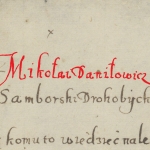 Mikołai Daniłowicz
Samborski Drohobyck
komu to wiedzieć nale